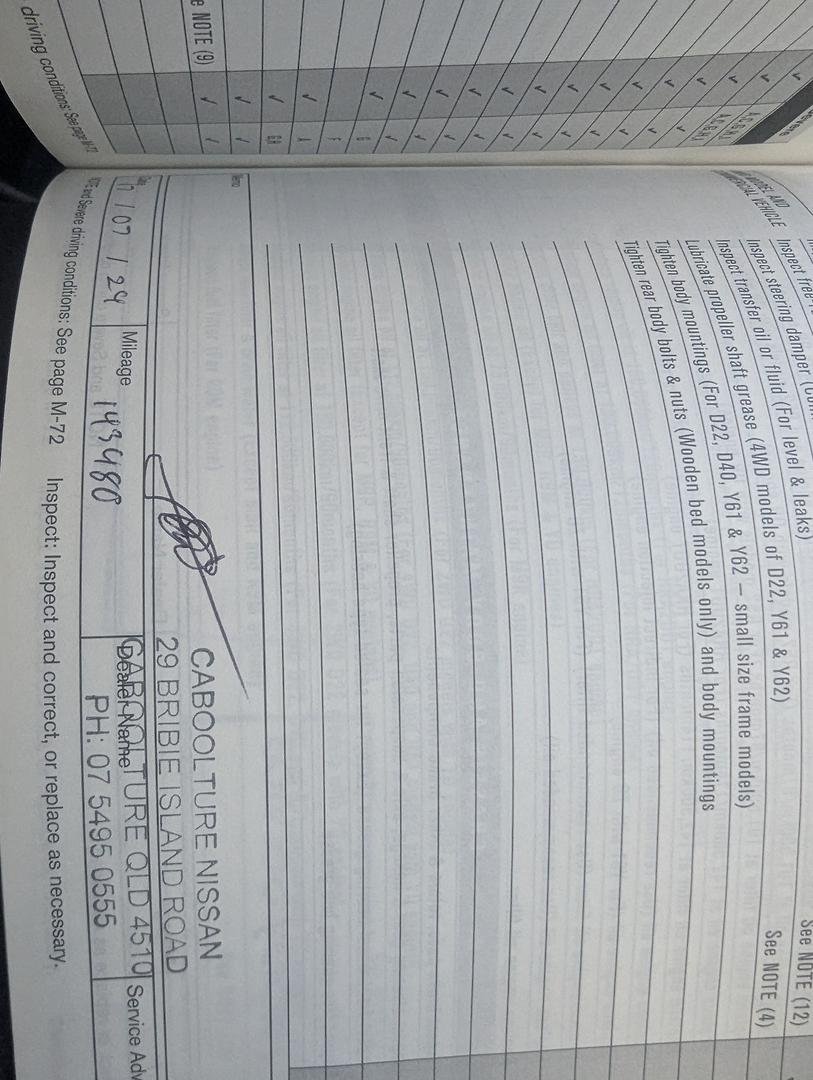 e NOTE (9)
driving conditions: See page M-72
MODEL AND
VEHICLE
See NOTE (12)
Inspect steering damper
Inspect transfer oil or fluid (For level & leaks)
See NOTE (4)
Inspect propeller shaft grease (4WD models of D22, Y61 & Y62)
Lubricate propeller shaft grease (4WD models of D22, Y61 & Y62)
Tighten body mountings (For D22, D40, Y61 & Y62 – small size frame models)
Tighten rear body bolts & nuts (Wooden bed models only) and body mountings
Memo
CABOOLTURE NISSAN
29 BRIBIE ISLAND ROAD
CABOOLTURE QLD 4510
PH: 07 5495 0555
17 / 07 / 24
Mileage
143480
Dealer Name
Service Adv
and Severe driving conditions: See page M-72
Inspect: Inspect and correct, or replace as necessary.